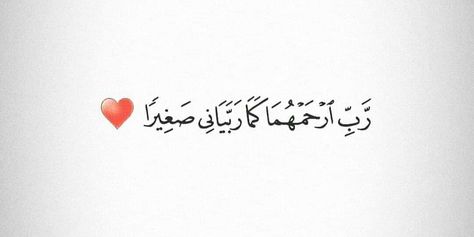 رَّبِّ ٱرْحَمْهُمَا كَمَا رَبَّيَانِى صَغِيرًا ❤️